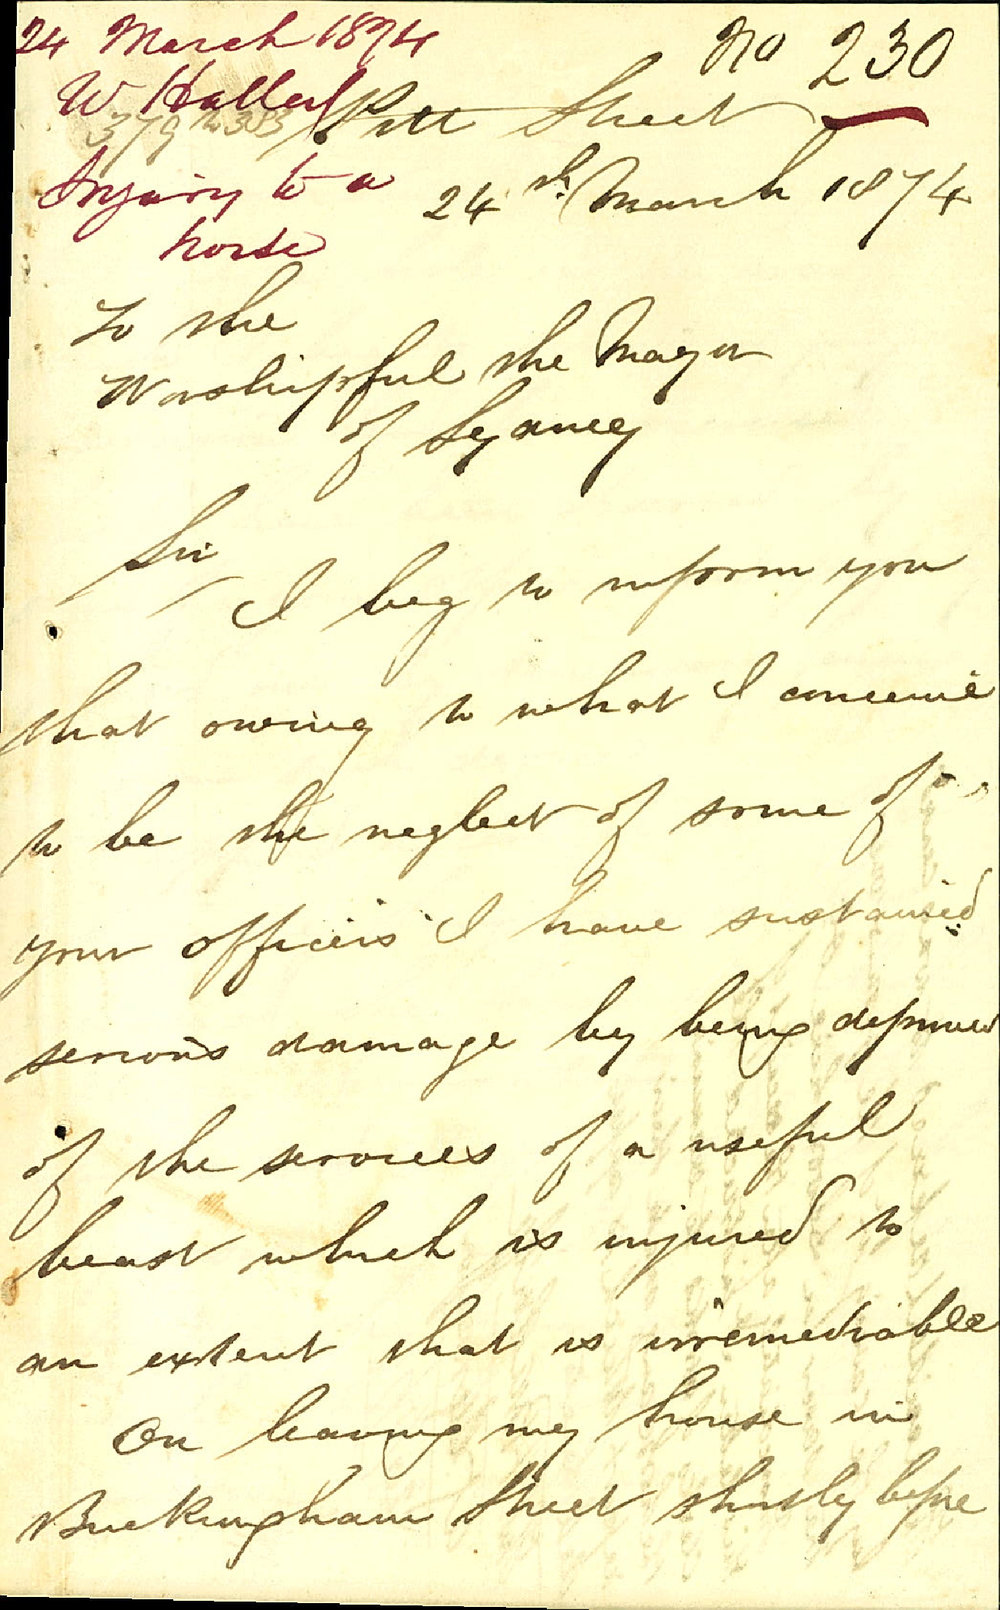 24 March 1874
No 230
W Hallert
379 to 383 Pitt Street
Injury to a
horse
24th March 1874
To the
Worshipful the Mayor
of Sydney
Sir
I beg to inform you
that owing to what I conceive
to be the neglect of some of
your officers I have sustained
serious damage by being deprived
of the services of a useful
beast which is injured to
an extent that is irremediable
On leaving my house in
Buckingham Street shortly before